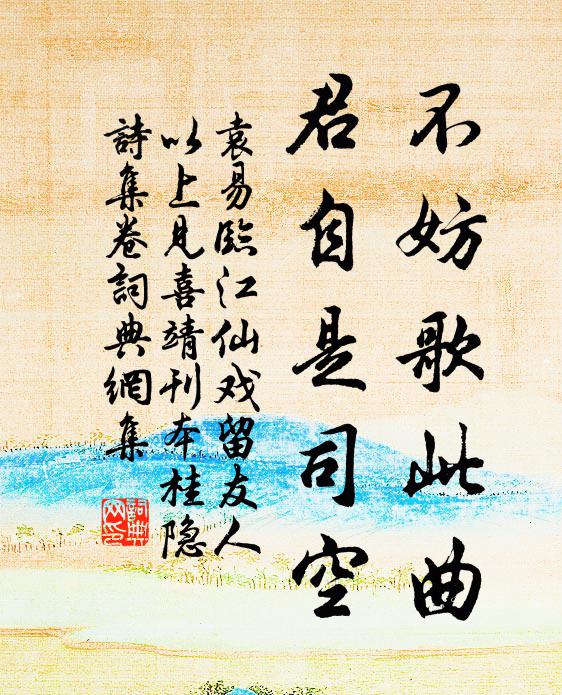 不妨歌此曲
君自是司空
袁易臨江仙戏留友人
以上见喜靖刊本桂隐
詩集卷詞典網集
詞典
网